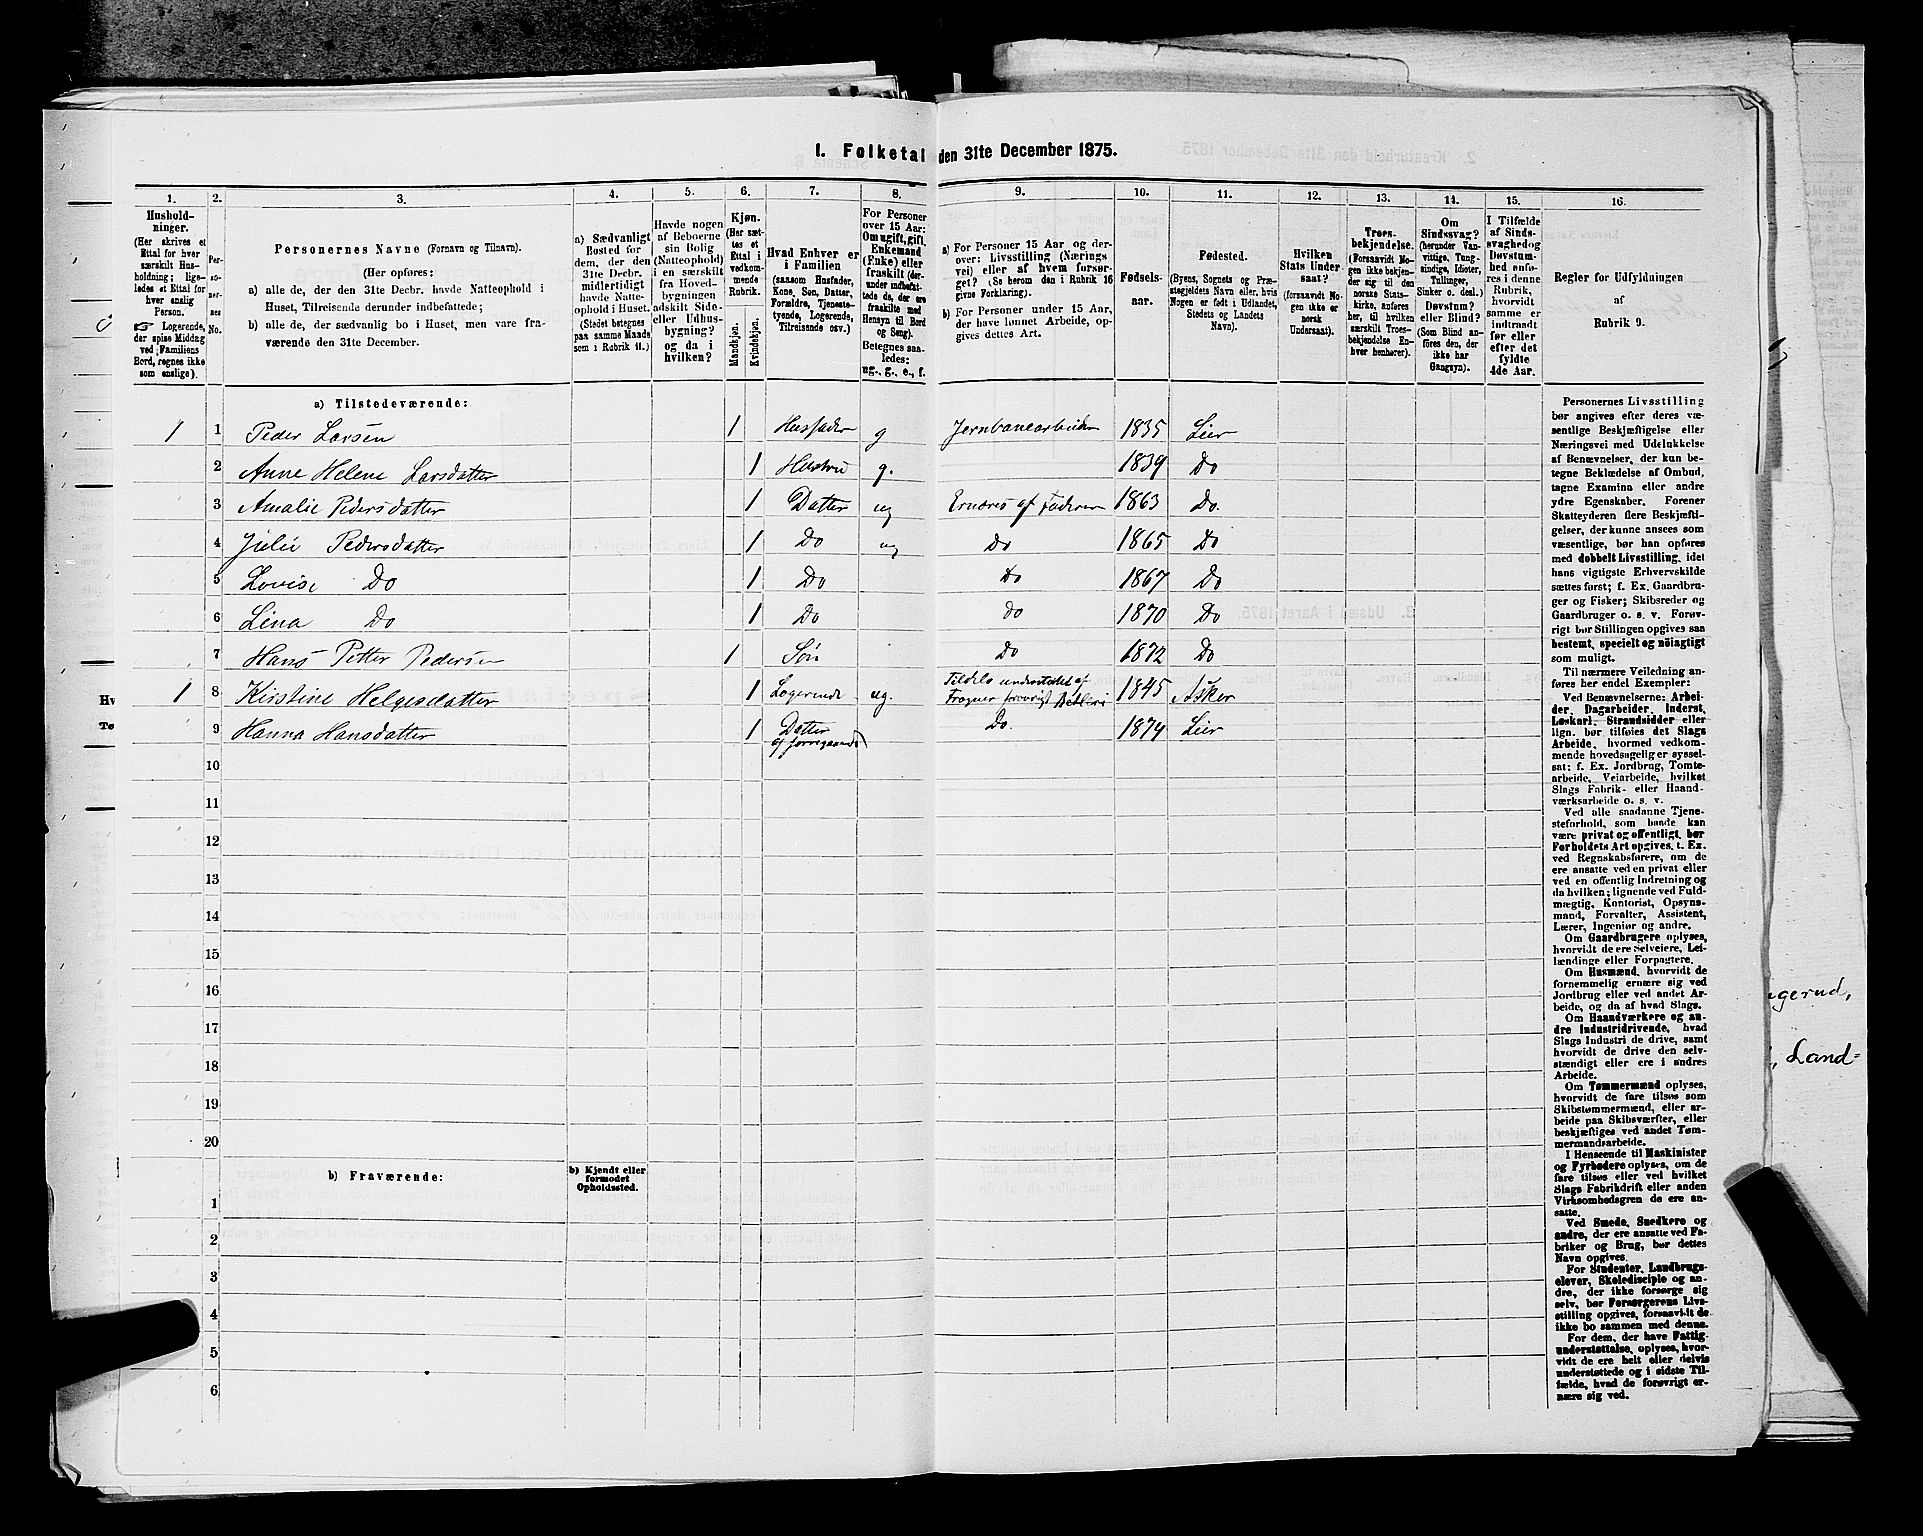 I. Folketal den 31te December 1875.
1.
2.
3.
4.
5.
6.
7.
8.
9.
10.
11.
12.
13.
14.
15.
16.
Hushold-
ninger.
(Her skrives et
Ettal for hver
særskilt Hus-
holdning; lige-
ledes et Ettal for
hver enslig
Person.
☞ Logerende,
der spise Middag
ved Familiens
Bord, regnes ikke
som enslige).
Per-
so-
ner-
nes
No.
Personernes Navne (Fornavn og Tilnavn).
(Her opføres:
a) alle de, der den 31te Decbr. havde Natteophold i
Huset, Tilreisende derunder indbefattede;
b) alle de, der sædvanlig bo i Huset, men vare fra-
værende den 31te December.
a) Sædvanligt
Bosted for
dem, der den
31te Decbr.
midlertidigt
havde Natte-
ophold i Huset.
(Stedet betegnes
paa samme Maade
som i Rubrik 11.)
Havde nogen
af Beboerne
sin Bolig
(Natteophold)
i en særskilt
fra Hoved-
bygningen
adskilt Side-
eller Udhus-
bygning?
og da i
hvilken?
Kjøn.
(Her sæt-
tes et
Ettal i
vedkom-
mende
Rubrik.
Mandkjøn.
Kvindekjøn.
Hvad Enhver er
i Familien
(saasom Husfader,
Kone, Søn, Datter,
Forældre, Tjeneste-
tyende, Logerende,
Tilreisende osv.)
For Personer
over 15 Aar:
Om ugift, gift,
Enkemand
(Enke) eller
fraskilt (der-
under indbefat-
tede de, der ere
fraskilte med
Hensyn til Bord
og Seng).
Betegnes saa-
ledes:
ug., g., e., f.
a) For Personer 15 Aar og der-
over: Livsstilling (Nærings-
vei) eller af hvem forsør-
get? (Se herom den i Rubrik 16
givne Forklaring).
b) For Personer under 15 Aar,
der have lønnet Arbeide, op-
gives dettes Art.
Fødsels-
aar.
Fødested.
(Byens, Sognets og Præ-
stegjeldets Navn eller, hvis
Nogen er født i Udlandet,
Stedets og Landets
Navn).
Hvilken
Stats Under-
saat?
(forsaavidt No-
gen ikke er
norsk
Undersaat).
Troes-
bekjendelse.
(Forsaavidt No-
gen ikke bekjen-
der sig til den
norske Stats-
kirke, anføres
her, til hvilken
særskilt Troes-
bekjendelse En-
hver henhører).
Om
Sindssvag?
(herunder Van-
vittige, Tung-
sindige, Idioter,
Tullinger,
Sinker o. desl.)
Døvstum?
eller Blind?
(Som Blind an-
føres den, der
ikke har
Gangsyn).
I Tilfælde
af Sinds-
svaghed og
Døvstum-
hed anfø-
res i denne
Rubrik,
hvorvidt
samme er
indtraadt
før eller
efter det
fyldte
4de Aar.
Regler for Udfyldningen
af
Rubrik 9.
a) Tilstedeværende:
1 1 Peder Larsen 1 Husfader g Jernbanearbeider 1835 Lier
2 Anne Helene Larsdatter 1 Hustru g. 1839 Do
3 Amalie Pedersdatter 1 Datter ug Ernæres af Faderen 1863 Do.
4 Julie Pedersdatter 1 Do ug Do 1865 Do
5 Lovise Do 1 Do Do 1867 Do
6 Lina Do 1 Do Do 1870 Do
7 Hans Petter Pedersen 1 Søn Do 1872 Do
1 8 Kirstine Helgesdatter 1 Logerende ug. Tildels understøttet af
Fragner forøvrigt Betleri 1845 Asker
9 Hanna Hansdatter 1 Datter
af foregaaende Do. 1874 Lier
10
11
12
13
14
15
16
17
18
19
20
b) Fraværende:
b) Kjendt eller
formodet
Opholdssted.
1
2
3
4
5
6
Personernes Livsstilling
bør angives efter deres væ-
sentlige Beskjæftigelse eller
Næringsvei med Udelukkelse
af Benævnelser, der kun be-
tegne Beklædelse af Ombud,
tagne Examina eller andre
ydre Egenskaber. Forener
Skatteyderen flere Beskjæfti-
gelser, der kunne ansees som
væsentlige, bør han opføres
med dobbelt Livsstilling, idet
hans vigtigste Erhvervskilde
sættes først; f. Ex. Gaardbru-
ger og Fisker; Skibsreder og
Gaardbruger o. s. v. Forøv-
rigt bør Stillingen opgives saa
bestemt, specielt og nøiagtigt
som muligt.
Til nærmere Veiledning an-
føres her endel Exempler:
Ved Benævnelserne: Arbei-
der, Dagarbeider, Inderst,
Løskarl, Strandsidder eller
lign. bør tilføies det Slags
Arbeide, hvormed vedkom-
mende hovedsagelig er syssel-
sat; f. Ex. Jordbrug, Tomte-
arbeide, Veiarbeide, hvilket
Slags Fabrik- eller Haand-
værksarbeide o. s. v.
Ved alle saadanne Tjene-
steforhold, som baade kan
være privat og offentligt, bør
Forholdets Art opgives, f. Ex.
ved Regnskabsførere, om de
ere ansatte ved en privat eller
ved en offentlig Indretning og
da hvilken; lignende ved Fuld-
mægtig, Kontorist, Opsyns-
mand, Forvalter, Assistent,
Lærer, Ingeniør og andre.
Om Gaardbrugere oplyses,
hvorvidt de ere Selveiere, Lei-
lændinge eller Forpagtere.
Om Husmænd, hvorvidt de
fornemmelig ernære sig ved
Jordbrug eller ved andet Ar-
beide, og da af hvad Slags.
Om Haandværkere og an-
dre Industridrivende, hvad
Slags Industri de drive, samt
hvorvidt de drive den selv-
stændigt eller ere i andres
Arbeide.
Om Tømmermænd oplyses,
hvorvidt de fare tilsøs som
Skibstømmermænd, eller ar-
beide paa Skibsværfter, eller
beskjæftiges ved andet Tøm-
mermandsarbeide.
I Henseende til Maskinister
og Fyrbødere oplyses, om de
fare tilsøs eller ved hvilket
Slags Fabrikdrift eller anden
Virksomhedsgren de ere an-
satte.
Ved Smede, Snedkere og
andre, der ere ansatte ved Fa-
briker og Brug, bør dettes
Navn opgives.
For Studenter, Landbrugs-
elever, Skoledisciple og an-
dre, der ikke forsørge sig
selv, bør Forsørgerens Livs-
stilling opgives, forsaavidt de
ikke bo sammen med denne.
For dem, der have Fattig-
understøttelse, oplyses, hvor-
vidt de ere helt eller delvis
understøttede og i sidste Til-
fælde, hvad de forøvrigt er-
nære sig ved.
gerud,
Land=